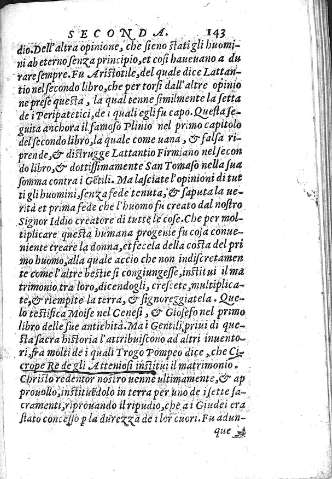 SECONDA. 143
dio. Dell'altra opinione, che sieno stati gli huomi-
ni ab eterno senza principio, et così haueuano a du
rare sempre. Fu Aristotile, del quale dice Lattan-
tio nel secondo libro, che per torsi dall'altre opinio
ne prese questa, la qual tenne similmente la setta
de i Peripatetici, de i quali egli fu capo. Questa se-
guita anchora il famoso Plinio nel primo capitolo
del secondo libro, la quale come uana, & falsa ri-
prende, & distrugge Lattantio Firmiano nel secon
do libro, & dottissimamente San Tomaso nella sua
somma contra i Gētili. Ma lasciate l'opinioni di tut
ti gli huomini, senza fede tenuta, & saputa la ue-
rità et prima fede che l'huomo fu creato dal nostro
Signor Iddio creatore di tutte le cose. Che per mol-
tiplicare questa humana progenie fu cosa conue-
niente creare la donna, et fecela della costa del pri
mo huomo, alla quale accio che non indiscretamen
te come l'altre bestie si congiungesse, institui il ma
trimonio tra loro, dicendogli, crescete, multiplica-
te, & riempite la terra, & signoreggiatela. Que-
lo testifica Moise nel Genesi, & Giosefo nel primo
libro delle sue antichità. Ma i Gentili, priui di que-
sta sacra historia l'attribuiscono ad altri inuento-
ri, fra molti de i quali Trogo Pompeo dice, che Ci-
crope Re de gli Atteniesi instituì il matrimonio.
Christo redentor nostro uenne ultimamente, & ap
prouollo, instituēdolo in terra per uno de i sette sa-
cramenti, riprouando il ripudio, che a i Giudei era
stato concesso p la durezza de i lor cuori. Fu adun-
que